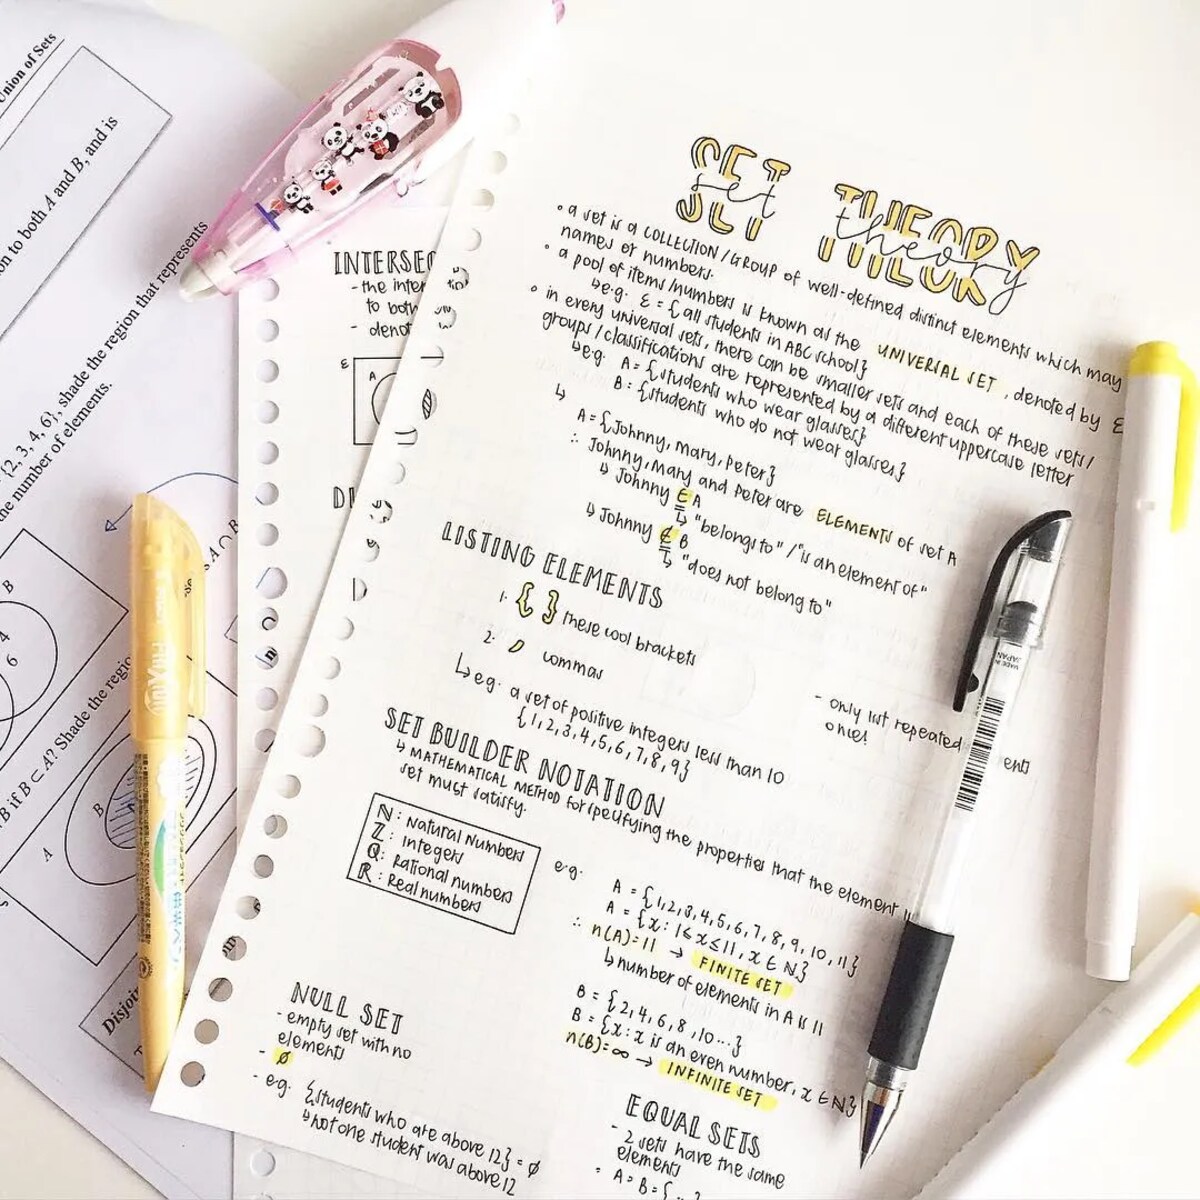 Union of Sets
on to both A and B, and is
{2, 3, 4, 6}, shade the region that represents
the number of elements.
B
4
6
A ∩ B
B if B ⊂ A? Shade the regio
A
B
Disjoin
INTERSEC
- the inter
to both
- denot
ε
A
SET THEORY
set theory
• a set is a COLLECTION/GROUP of well-defined distinct elements which may
names or numbers.
• a pool of items/numbers is known as the UNIVERSAL SET, denoted by ε
↳ e.g. ε = {all students in ABC school}
• in every universal sets, there can be smaller sets and each of these sets/
groups/classifications are represented by a different uppercase letter
↳ e.g. A = {students who wear glasses}
B = {students who do not wear glasses}
↳ A = {Johnny, Mary, Peter}
∴ Johnny, Mary and Peter are ELEMENTS of set A
↳ Johnny ∈ A
↳ "belongs to" / "is an element of"
↳ Johnny ∉ B
↳ "does not belong to"
LISTING ELEMENTS
1. { } these cool brackets
2. , commas
↳ e.g. a set of positive integers less than 10
{1, 2, 3, 4, 5, 6, 7, 8, 9}
- only list repeated
once!
SET BUILDER NOTATION
↳ MATHEMATICAL METHOD for specifying the properties that the element
set must satisfy.
ℕ: Natural Numbers
ℤ: Integers
ℚ: Rational numbers
ℝ: Real numbers
e.g. A = {1, 2, 3, 4, 5, 6, 7, 8, 9, 10, 11}
A = {x: 1 ≤ x ≤ 11, x ∈ ℕ}
∴ n(A) = 11 → FINITE SET
↳ number of elements in A is 11
B = {2, 4, 6, 8, 10 ...}
B = {x: x is an even number, x ∈ ℕ}
n(B) = ∞ → INFINITE SET
NULL SET
- empty set with no
elements
- ∅
- e.g. {students who are above 12} = ∅
↳ not one student was above 12
EQUAL SETS
- 2 sets have the same
elements
- A = B = { ... }
MADE IN
JAPAN